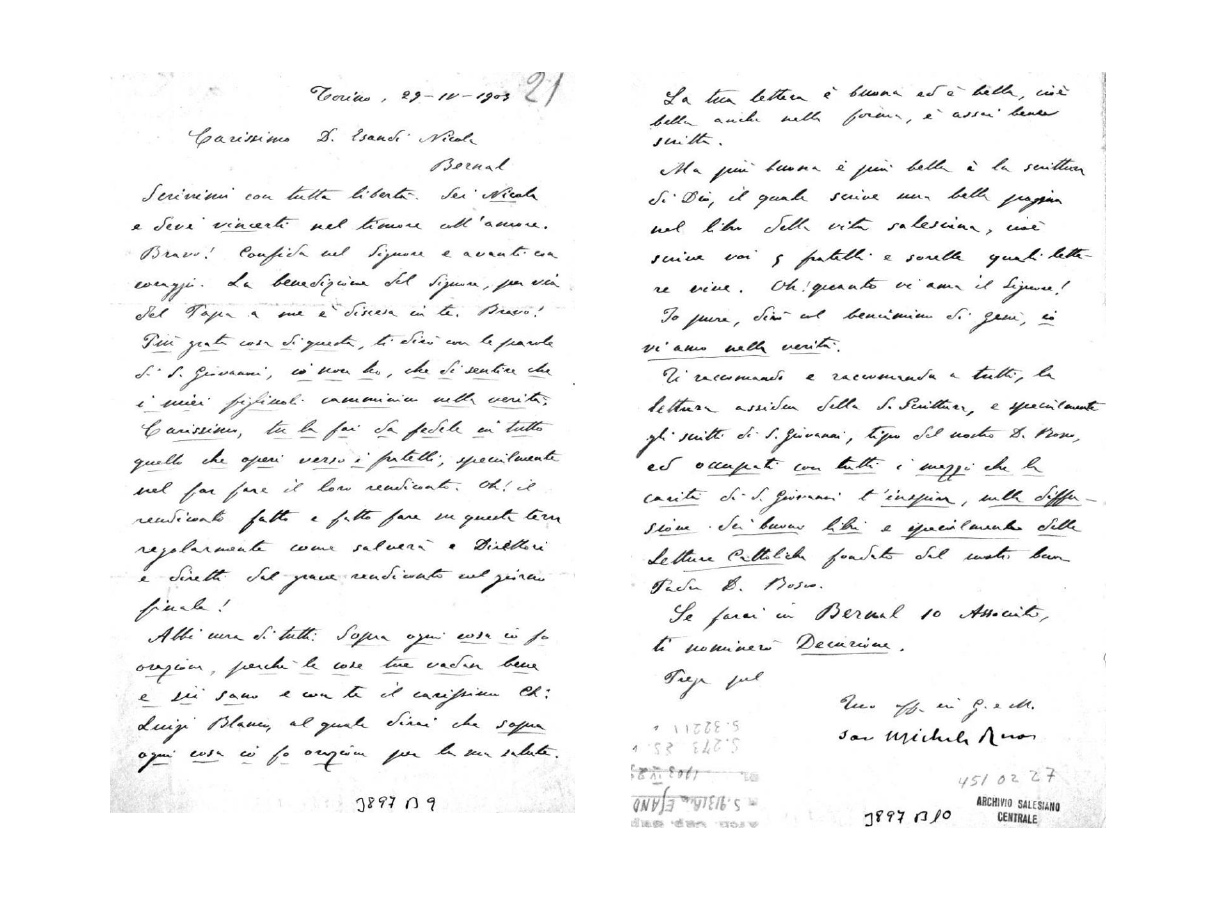 Torino, 29-IV-1903 21
Carissimo D. Esandi Nicola
Bernal
Scrivimi con tutta libertà. Sei Nicola
e devi vincerti nel timore coll'amore.
Bravo! Confida nel Signore e avanti con
coraggio. La benedizione del Signore, per via
del Papa a me è discesa in te. Bravo!
Più grata cosa di questa, ti dirò con le parole
di S. Giovanni, io non ho, che di sentire che
i miei figliuoli camminin nella verità.
Carissimo, tu la fai da fedele in tutto
quello che operi verso i fratelli, specialmente
nel far fare il loro rendiconto. Oh! il
rendiconto fatto e fatto fare in questa terra
regolarmente come salverà e Direttori
e diretti dal grave rendiconto nel giorno
finale!
Abbi cura di tutti. Sopra ogni cosa io fo
orazion, perchè le cose tue vadan bene
e sii sano e con te il carissimo Ch:
Luigi Blanco, al quale dirai che sopra
ogni cosa io fo orazion per la sua salute.
3897 B 9
La tua lettera è buona ed è bella, cioè
bella anche nella forma, è assai bene
scritta.
Ma più buona e più bella è la scrittura
di Dio, il quale scrive una bella pagina
nel libro della vita salesiana, cioè
scrive voi 5 fratelli e sorelle quali lette-
re vive. Oh! quanto vi ama il Signore!
Io pure, dirò col beniamino di Gesù, io
vi amo nella verità.
Ti raccomando e raccomanda a tutti, la
lettura assidua della S. Scrittura, e specialmente
gli scritti di S. Giovanni, tipo del nostro D. Bosco,
ed occupati con tutti i mezzi che la
carità di S. Giovanni t'inspira, nella diffu-
sione dei buoni libri e specialmente delle
Letture Cattoliche fondate dal nostro buon
Padre D. Bosco.
Se farai in Bernal 10 Associati,
ti nominerò Decurione.
Prega pel
Tuo aff. in G. e M.
Sac. Michele Rua
S. 32211
S. 273 25
1903 IV 29
S. 9131B ESAND
451 02 27
3897 B 10
ARCHIVIO SALESIANO
CENTRALE